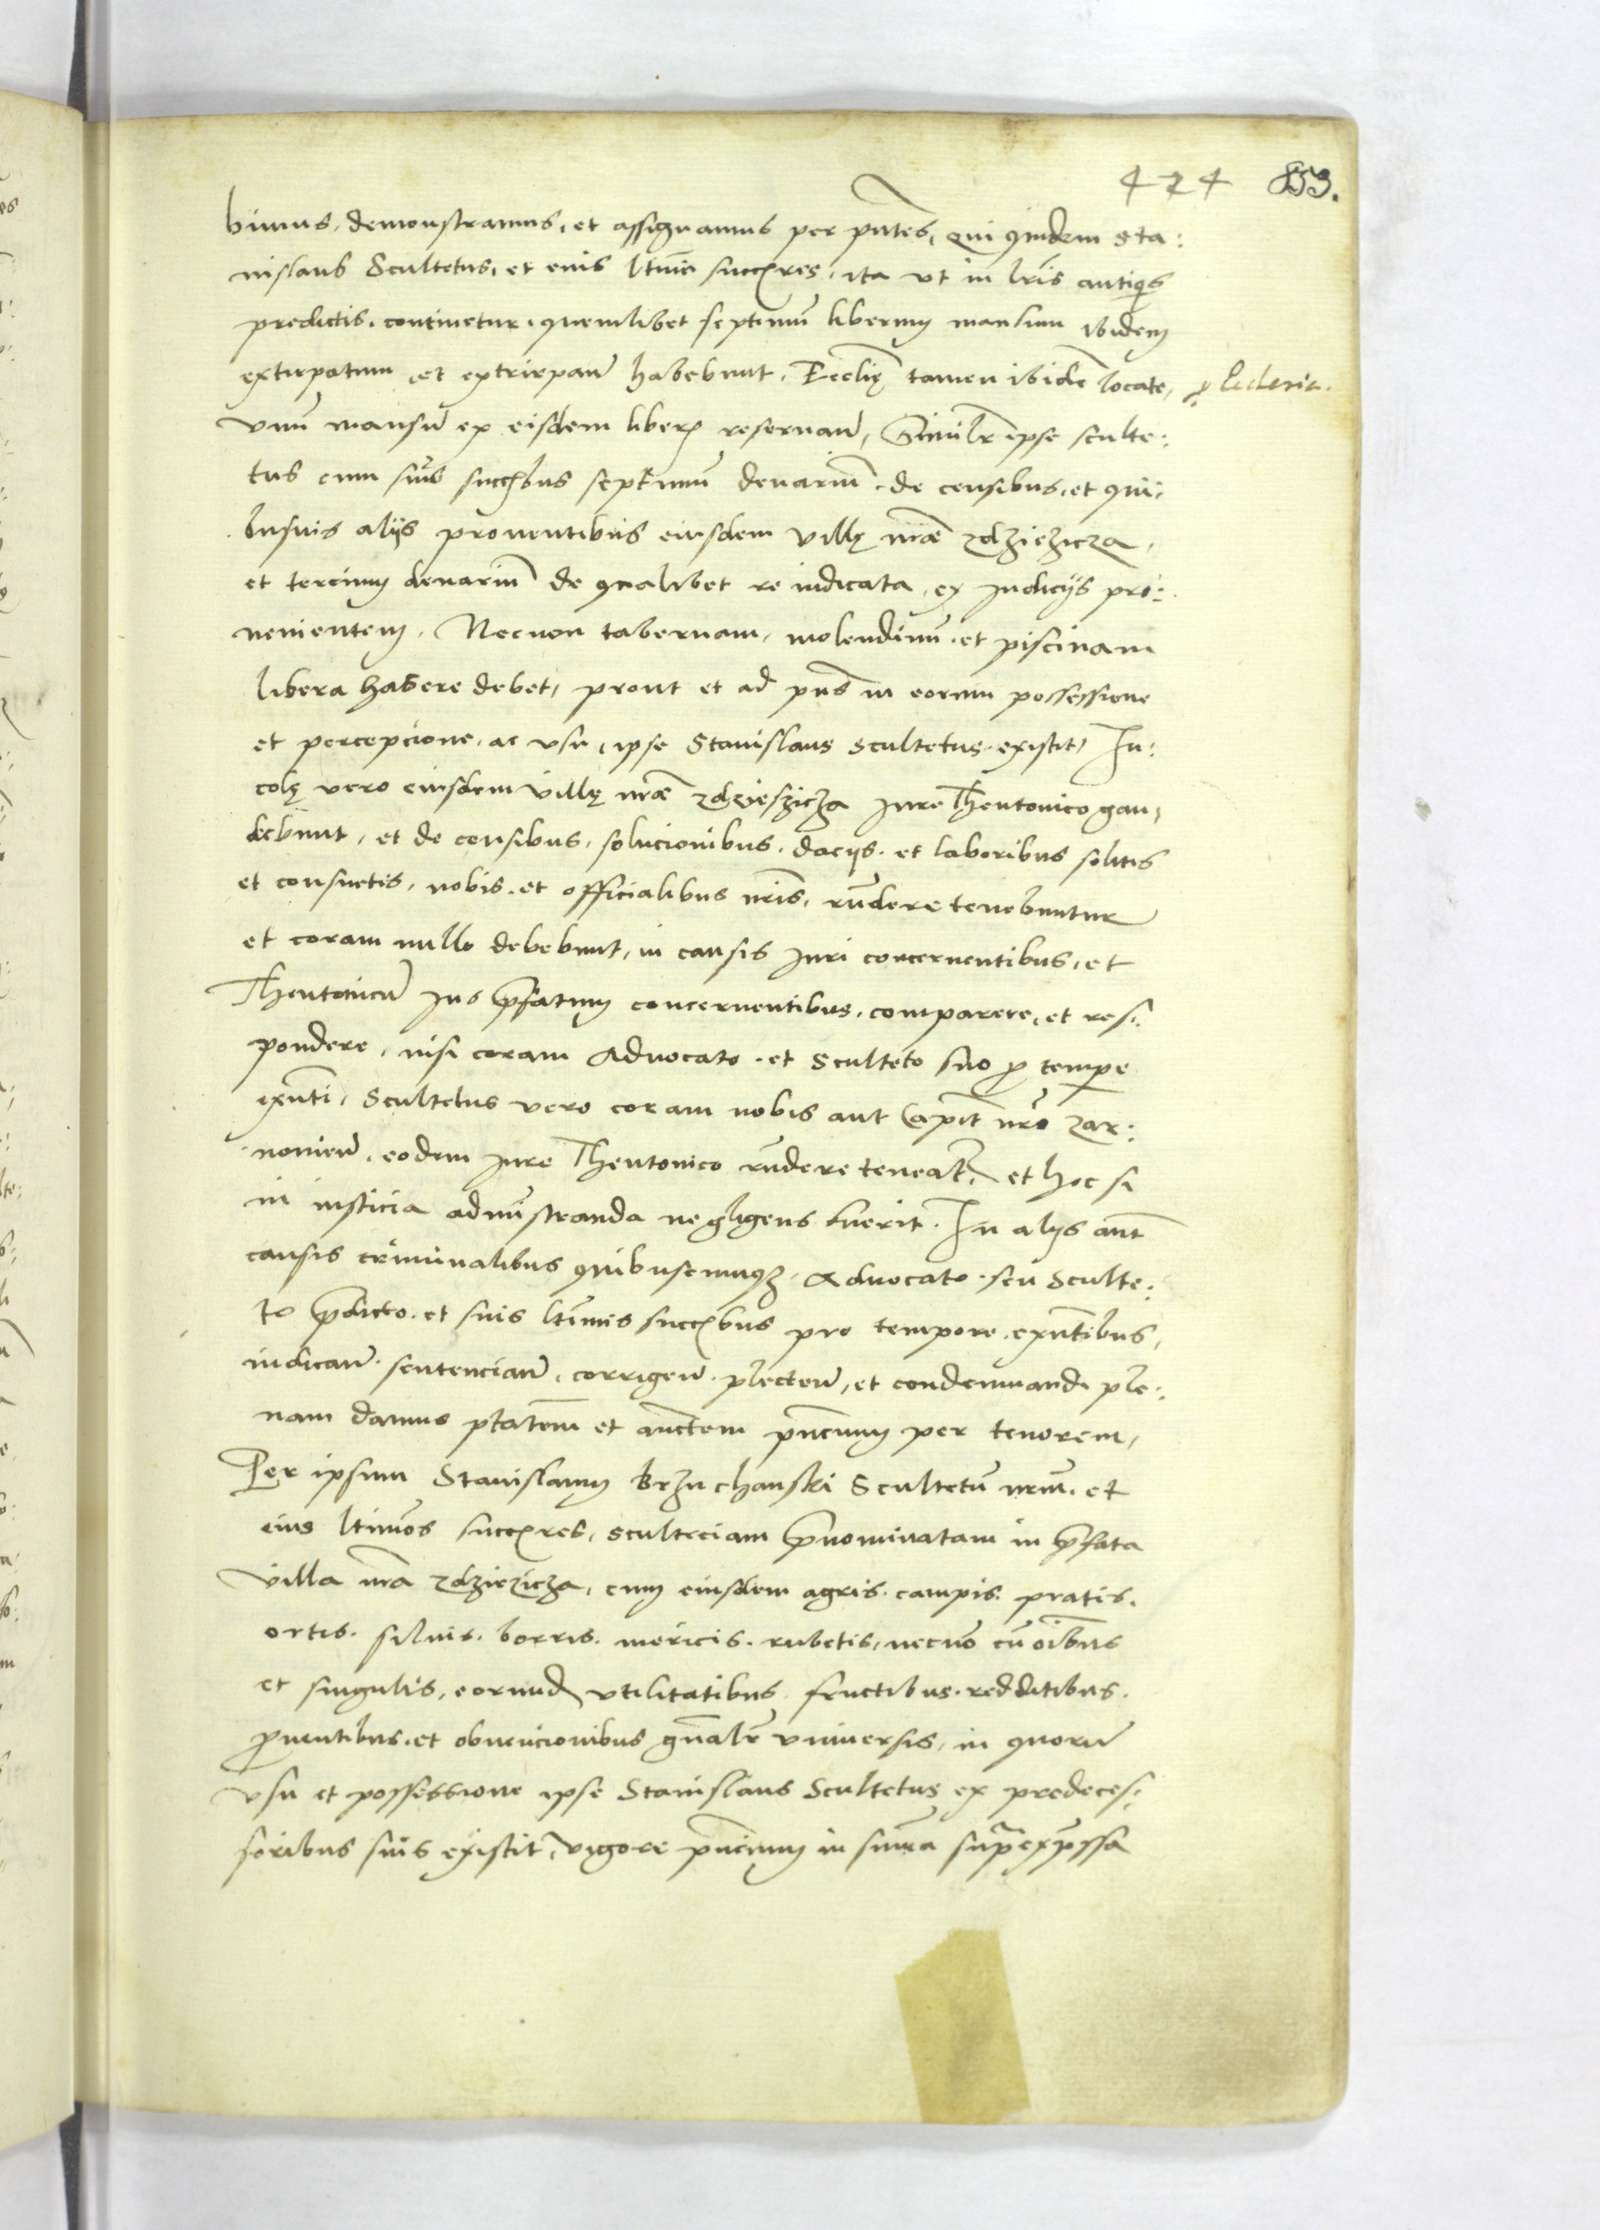 424 853.
bimus, demonstramus, et assignamus per pñtes, qui quidem Sta:
nislaus Scultetus, et eius ltimi succřes, ita vt in lris antiqis
predictis, continetur, quemlibet septimũ liberum mansum ibidem
extirpatum, et extirpanđ habebunt, Ecclię tamen ibidẽ locate,
vnũ mansũ ex eisdem liberũ reseruanđ, Similr ipse sculte:
tus cum suis succřbus septimũ denariũ de censibus, et qui:
busuis alijs prouentibus eiusdem villę nræ zdziezicza,
et tercium denariũ de qualibet re iudicata, ex Judicijs pro:
uenientem, Necnon tabernam, molendinũ, et piscinam
libera habere debet, prout et ad pñs in eorum possessione
et percepcione, ac vsu, ipse Stanislaus Scultetus existit, In:
colę vero eiusdem villę nræ zdzieszicza Jure Theutonico gau,
debunt, et de censibus, solucionibus, dacijs, et laboribus solitis
et consuetis, nobis, et officialibus nris, rñdere tenebuntur
et coram nullo debebunt, in causis Juri concernentibus, et
Theutonicũ Jus p̃fatum concernentibus, comparere, et res:
pondere, nisi coram Aduocato, et Sculteto suo p tempe
exñti, Scultetus vero coram nobis aut Capit nro zar:
nouień, eodem Jure Theutonico rñdere teneatr, et hoc si
in iusticia admĩstranda negligens fuerit. In alijs aũt
causis criminalibus quibuscunqz, Aduocato seu Sculte:
to p̃dicto, et suis ltimis succřbus pro tempore exñtibus,
iudicanđ, sentencianđ, corrigenđ, plectenđ, et condemnandi ple:
nam damus ptatem et auctem pñcium per tenorem,
Per ipsum Stanislaum krzuchanski Scultetũ nrũm, et
eius ltimos succřes, sculteciam p̃nominatam in p̃fata
villa nra zdziezicza, cum eiusdem agris, campis, pratis,
ortis, siluis, borris, mericis, rubetis, necnõ cũ oĩbus
et singulis, eorund vtilitatibus, fructibus, redditibus,
puentibus, et obuencionibus gñalr vniuersis, in quorũ
vsu et possessione ipse Stanislaus Scultetus ex predeces:
soribus suis existit, vigore pñcium in sum̃a supra exp̃ssa